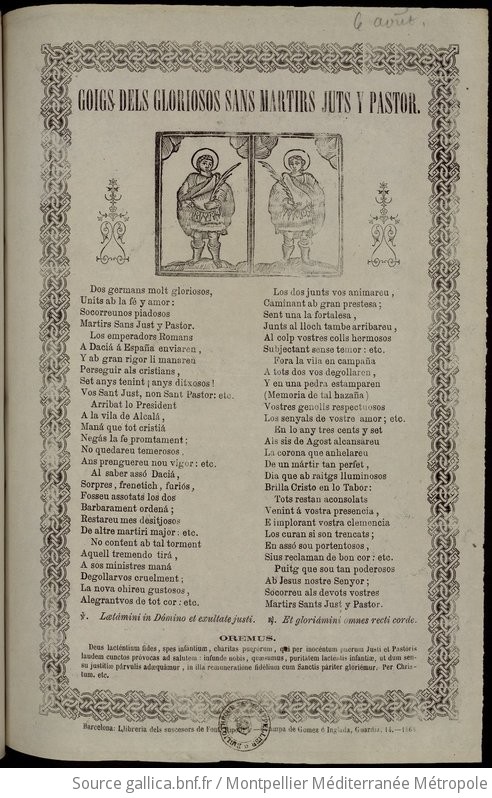 6 avril.
GOIGS DELS GLORIOSOS SANS MARTIRS JUTS Y PASTOR.
Dos germans molt gloriosos,
Units ab la fé y amor:
Socorreunos piadosos
Martirs Sans Just y Pastor.
Los emperadors Romans
A Daciá á España enviaren,
Y ab gran rigor li manareu
Perseguir als cristians,
Set anys tenint ¡anys ditxosos!
Vos Sant Just, non Sant Pastor: etc.
Arribat lo President
A la vila de Alcalá,
Maná que tot cristiá
Negás la fe promtament;
No quedareu temerosos
Ans prenguereu nou vigor: etc.
Al saber assó Daciá,
Sorpres, frenetich, furiós,
Fosseu assotats los dos
Barbarament ordená;
Restareu mes desitjosos
De altre martiri major: etc.
No content ab tal torment
Aquell tremendo tirá,
A sos ministres maná
Degollarvos cruelment;
La nova ohireu gustosos,
Alegrantvos de tot cor: etc.
Los dos junts vos animareu,
Caminant ab gran prestesa;
Sent una la fortalesa,
Junts al lloch tambe arribareu,
Al colp vostres colls hermosos
Subjectant sense temor: etc.
Fora la vila en campaña
A tots dos vos degollaren,
Y en una pedra estamparen
(Memoria de tal hazaña)
Vostres genolls respectuosos
Los senyals de vostre amor; etc.
En lo any tres cents y set
Als sis de Agost alcansareu
La corona que anhelareu
De un mártir tan perfet,
Dia que ab raitgs lluminosos
Brilla Cristo en lo Tabor:
Tots restan aconsolats
Venint á vostra presencia,
E implorant vostra clemencia
Los curan si son trencats;
En assó sou portentosos,
Sius reclaman de bon cor: etc.
Puitg que sou tan poderosos
Ab Jesus nostre Senyor;
Socorreu als devots vostres
Martirs Sants Just y Pastor.
℣. Lætámini in Dómino et exultate justi. ℟. Et gloriámini omnes recti corde.
OREMUS.
Deus lacténtium fides, spes infantium, charitas puerorum, qui per inocéntum puerum Justi et Pastoris
laudem cunctos próvocas ad salutem: infunde nobis, quæsumus, puritatem lactentis infantiæ, ut dum sen-
su justitiæ párvulis adæquámur, in illa remuneratione fidélium cum Sanctis páriter gloriémur. Per Chris-
tum, etc.
Barcelona: Llibreria dels succesors de Font de Gomez é Inglada, Guardia, 14.
Source gallica.bnf.fr / Montpellier Méditerranée Métropole